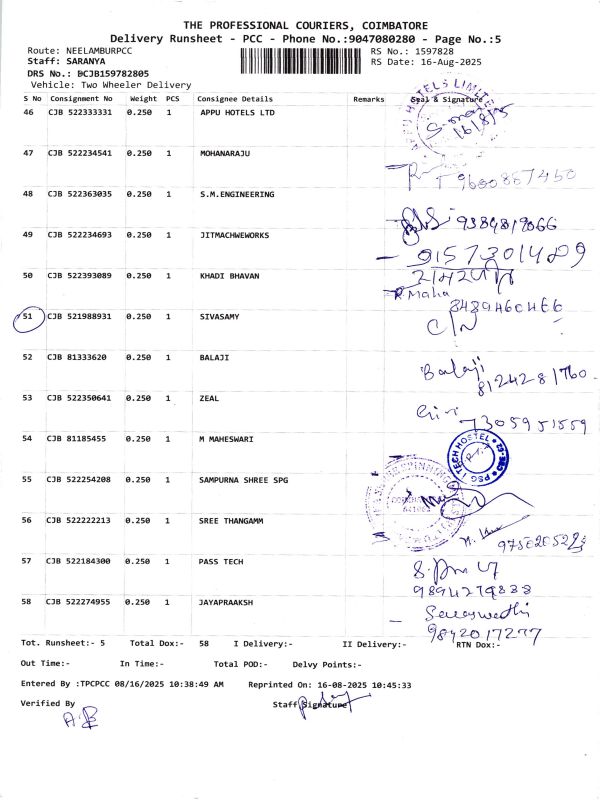 THE PROFESSIONAL COURIERS, COIMBATORE
Delivery Runsheet - PCC - Phone No.:9047080280 - Page No.:5
Route: NEELAMBURPCC RS No.: 1597828
Staff: SARANYA RS Date: 16-Aug-2025
DRS No.: BCJB159782805
Vehicle: Two Wheeler Delivery *BCJB159782805*
S No Consignment No Weight PCS Consignee Details Remarks Seal & Signature
46 CJB 522333331 0.250 1 APPU HOTELS LTD 16/8/25
47 CJB 522234541 0.250 1 MOHANARAJU
9600887450
48 CJB 522363035 0.250 1 S.M.ENGINEERING
9384819066
49 CJB 522234693 0.250 1 JITMACHWEWORKS
9157301489
50 CJB 522393089 0.250 1 KHADI BHAVAN
R. Maha
8489460466
51 CJB 521988931 0.250 1 SIVASAMY C/N
52 CJB 81333620 0.250 1 BALAJI Balaji
8124281760
53 CJB 522350641 0.250 1 ZEAL Giri
7305951559
54 CJB 81185455 0.250 1 M MAHESWARI PSG I TECH HOSTEL
55 CJB 522254208 0.250 1 SAMPURNA SHREE SPG
56 CJB 522222213 0.250 1 SREE THANGAMM
57 CJB 522184300 0.250 1 PASS TECH
9894279833
58 CJB 522274955 0.250 1 JAYAPRAAKSH Saraswathi
9842017277
Tot. Runsheet:- 5 Total Dox:- 58 I Delivery:- II Delivery:- RTN Dox:-
Out Time:- In Time:- Total POD:- Delvy Points:-
Entered By :TPCPCC 08/16/2025 10:38:49 AM Reprinted On: 16-08-2025 10:45:33
Verified By Staff Signature